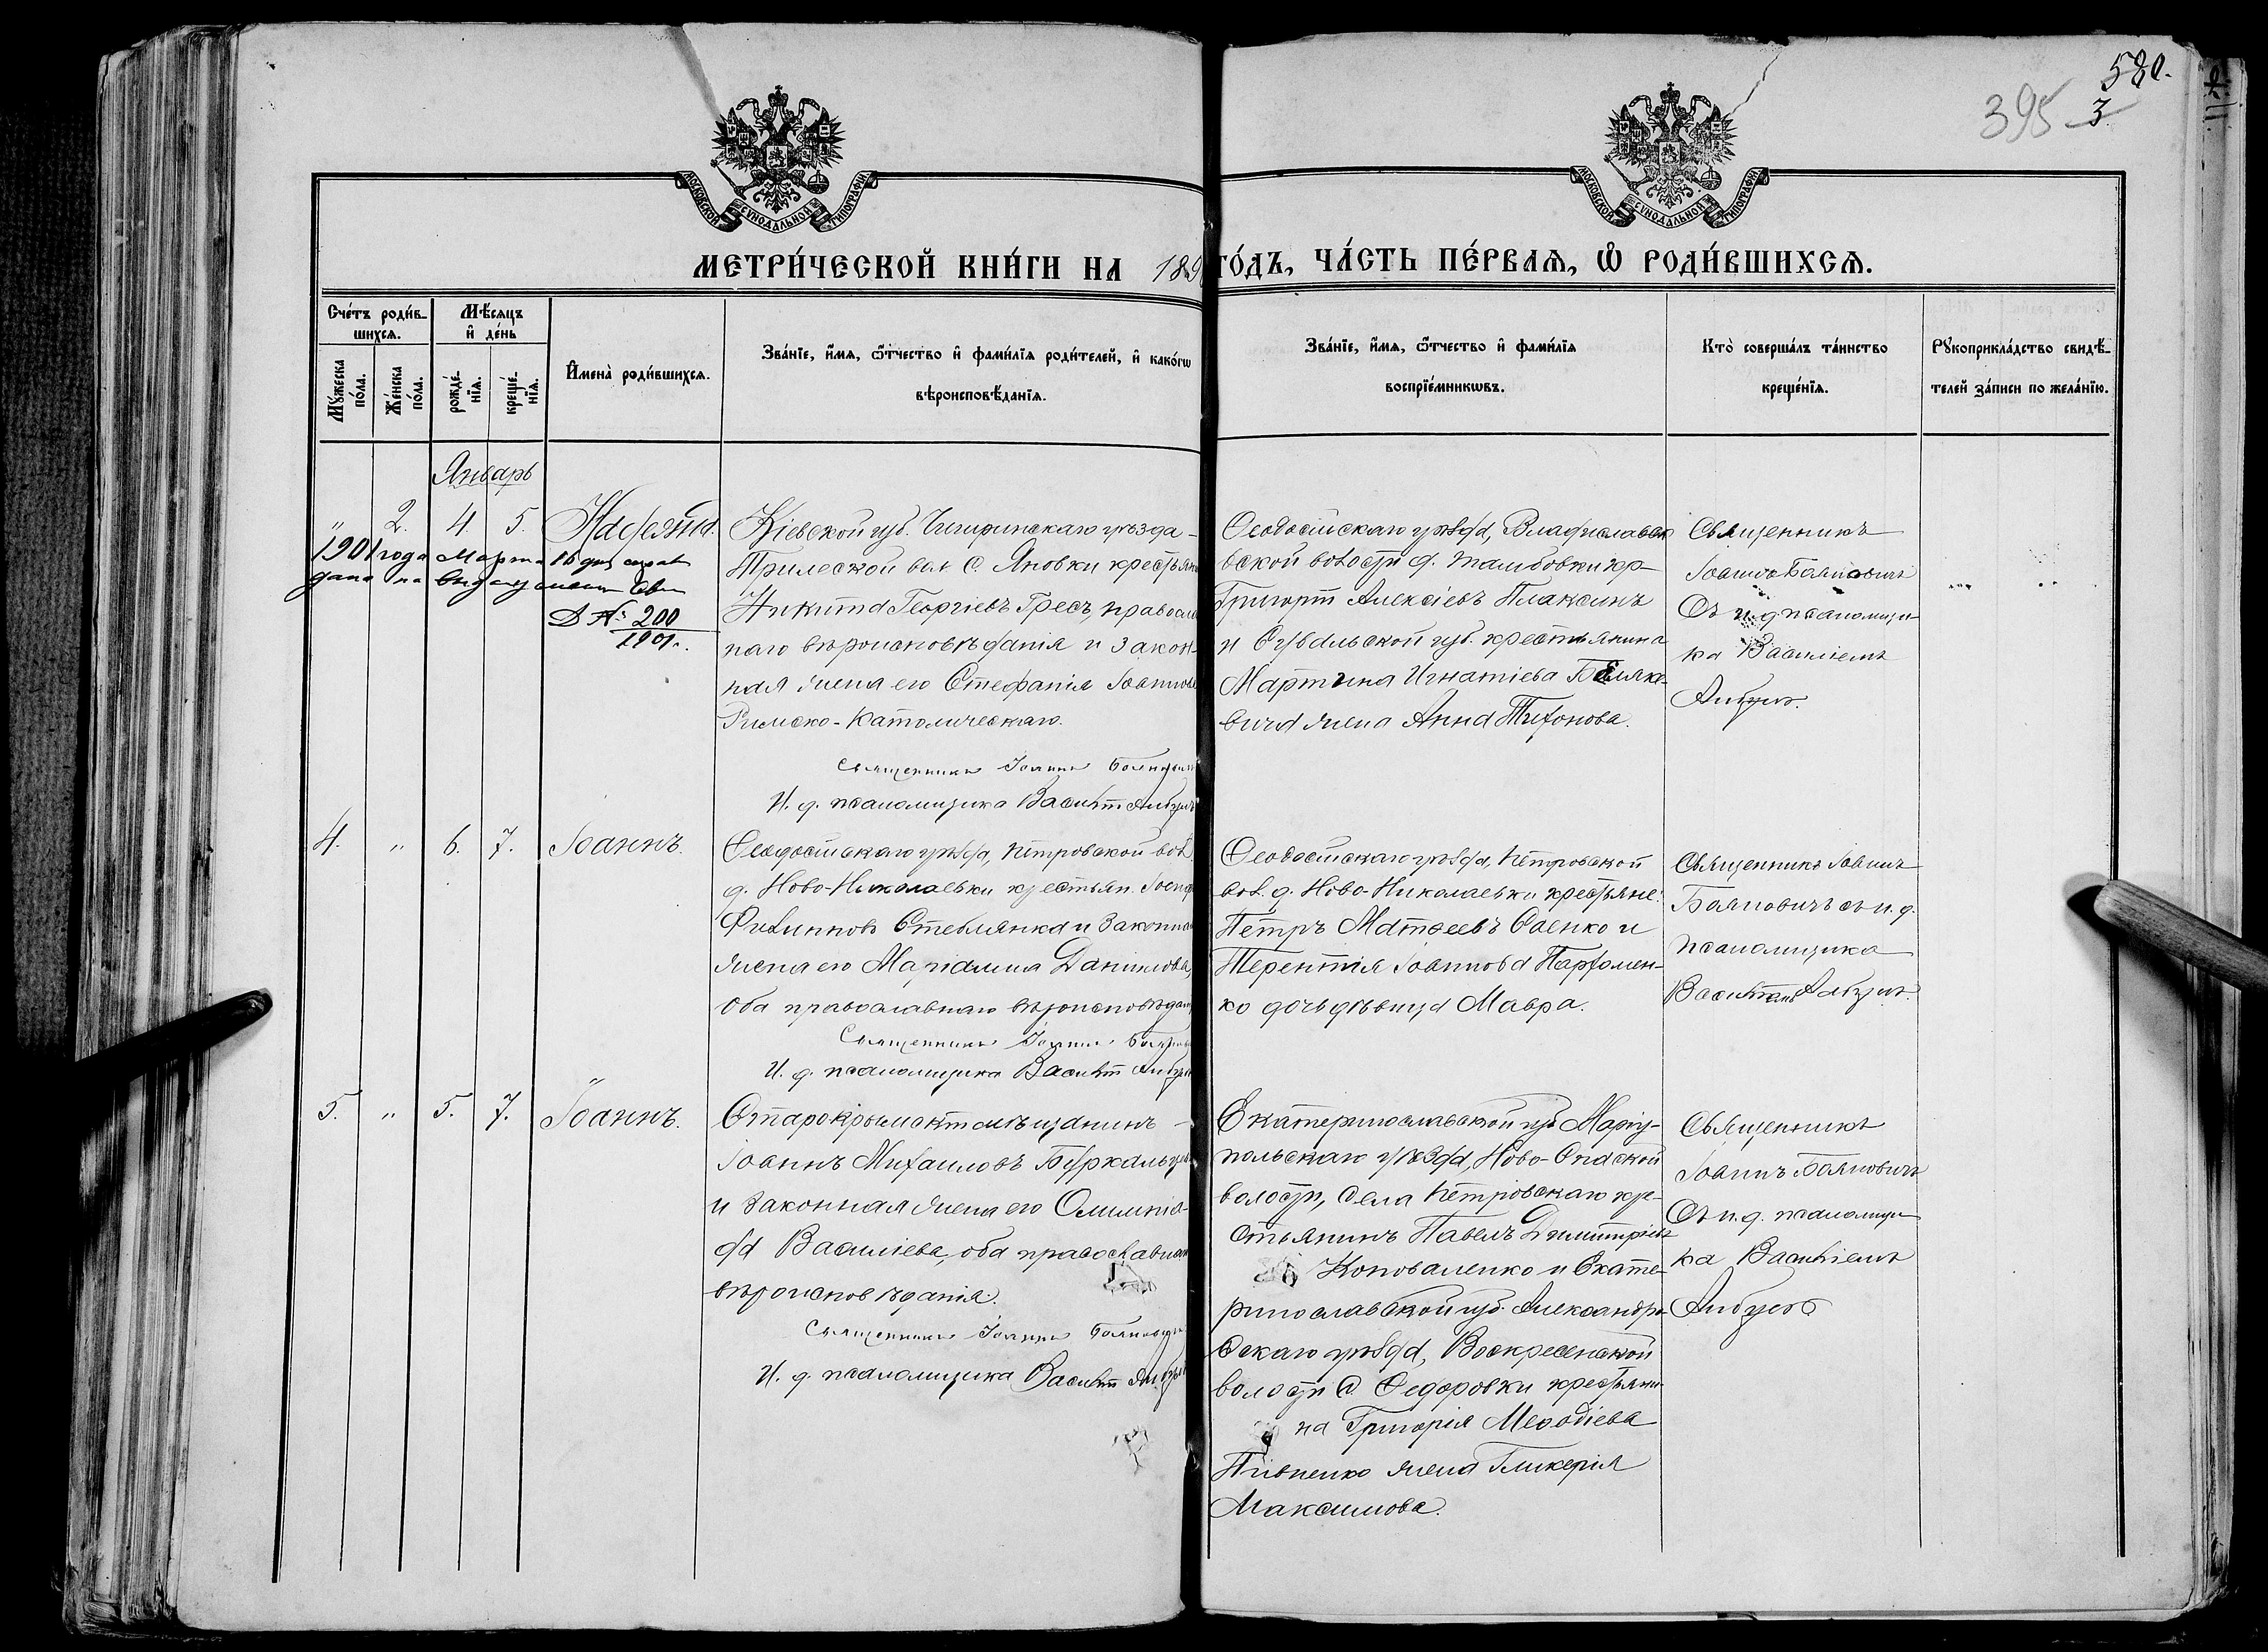 580.
395 3
МОСКОВСКОЙ СѴНОДАЛЬНОЙ ТИПОГРАФІИ
МОСКОВСКОЙ СѴНОДАЛЬНОЙ ТИПОГРАФІИ
МЕТРИ́ЧЕСКОЙ КНИ́ГИ НА 189 ГО́ДЪ, ЧА́СТЬ ПЕ́РВАѦ, Ѡ҆ РОДИ́ВШИХСѦ.
Сче́тъ роди́в-
шихсѧ.
Мꙋ́жеска по́ла.
Же́нска по́ла.
Мѣ́сѧцъ
и҆ де́нь
рожде́-
нїѧ.
креще́-
нїѧ.
И҆мена̀ роди́вшихсѧ.
Зва́нїе, и҆́мѧ, ѻ҆́тчество и҆ фами́лїѧ роди́телей, и҆ како́гѡ
вѣроисповѣ́данїѧ.
Зва́нїе, и҆́мѧ, ѻ҆́тчество и҆ фами́лїѧ
воспрїе́мникѡвъ.
Кто̀ соверша́лъ та́инство
креще́нїѧ.
Рꙋкоприкла́дство свидѣ́-
телей за́писи по жела́нїю.
Январь
" 2. 4 5.
1901 года Марта 16 дня
дано на
№ 200
1901 г.
Кіевской губ. Чигиринскаго уѣзда
Трилеской вол. с. Яновки крестьян
Никита Георгіевъ Гресъ, православ
наго вѣроисповѣданія и закон-
ная жена его Стефанія Іоаннова
Римско-Католическаго.
Священникъ Іоаннъ Бояновичъ
И. д. псаломщика Василій
Ѳеодосійскаго уѣзда, Владиславов
вской волости д. Тамбовки кр.
Григорій Алексіевъ Плаксинъ
и Сувальской губ. крестьянина
Мартина Игнатіева
вича жена Анна Тихонова.
Священникъ
Іоаннъ Бояновичъ
Съ и. д. псаломщи-
ка Василіемъ
4. " 6. 7. Іоаннъ.
Ѳеодосійскаго уѣзда, Петровской вол.
д. Ново-Николаевки крестьян. Іосиф
Филипповъ Стеблянка и законная
жена его Маріамна Даніилова,
оба православнаго вѣроисповѣдан
Священникъ Іоаннъ Боянович
И. д. псаломщика Василій
Ѳеодосійскаго уѣзда, Петровской
вол. д. Ново-Николаевки крестьяне:
Петръ Матѳеевъ Саенко и
Терентія Іоаннова Пархомен-
ко дочь дѣвица Мавра.
Священникъ Іоаннъ
Бояновичъ съ и. д.
псаломщика
Василіемъ
5. " 5. 7. Іоаннъ.
Старокрымскій мѣщанинъ
Іоаннъ Михаиловъ
и законная жена его Олимпіа-
да Василіева, оба православнаго
вѣроисповѣданія.
Священникъ Іоаннъ Бояновичъ
И. д. псаломщика Василій
Екатеринославской губ. Маріу-
польскаго уѣзда, Ново-Спаской
волости, села Петровскаго кре-
стьянинъ Павелъ Димитріевъ
Коноваленко и Екате-
ринославской губ. Александро-
вскаго уѣзда, Воскресенской
волости с. Ѳедоровки крестьяни-
на Григорія Меѳодіева
Пивненко жена Гликерія
Максимова.
Священникъ
Іоаннъ Бояновичъ
Съ и. д. псаломщи-
ка Василіемъ